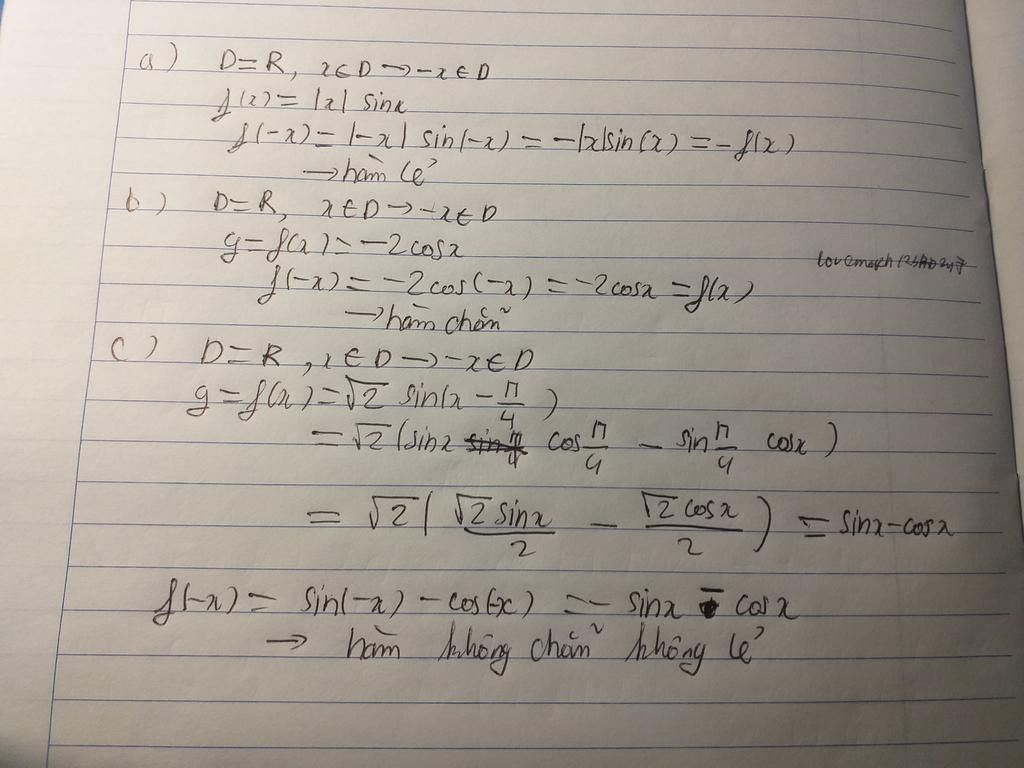 a) D=R, x∈D→-x∈D
f(x)=|x| sinx
f(-x)=|-x| sin(-x)=-|x|sin(x)=-f(x)
→hàm lẻ
b) D=R, x∈D→-x∈D
y=f(x)=-2cosx
f(-x)=-2cos(-x)=-2cosx=f(x)
→hàm chẵn
c) D=R, x∈D→-x∈D
y=f(x)=√2 sin(x-π/4)
=√2(sinx cos π/4 - sin π/4 cosx)
=√2(√2sinx/2 - √2cosx/2)=sinx-cosx
f(-x)=sin(-x)-cos(-x)=-sinx-cosx
→ hàm không chẵn không lẻ